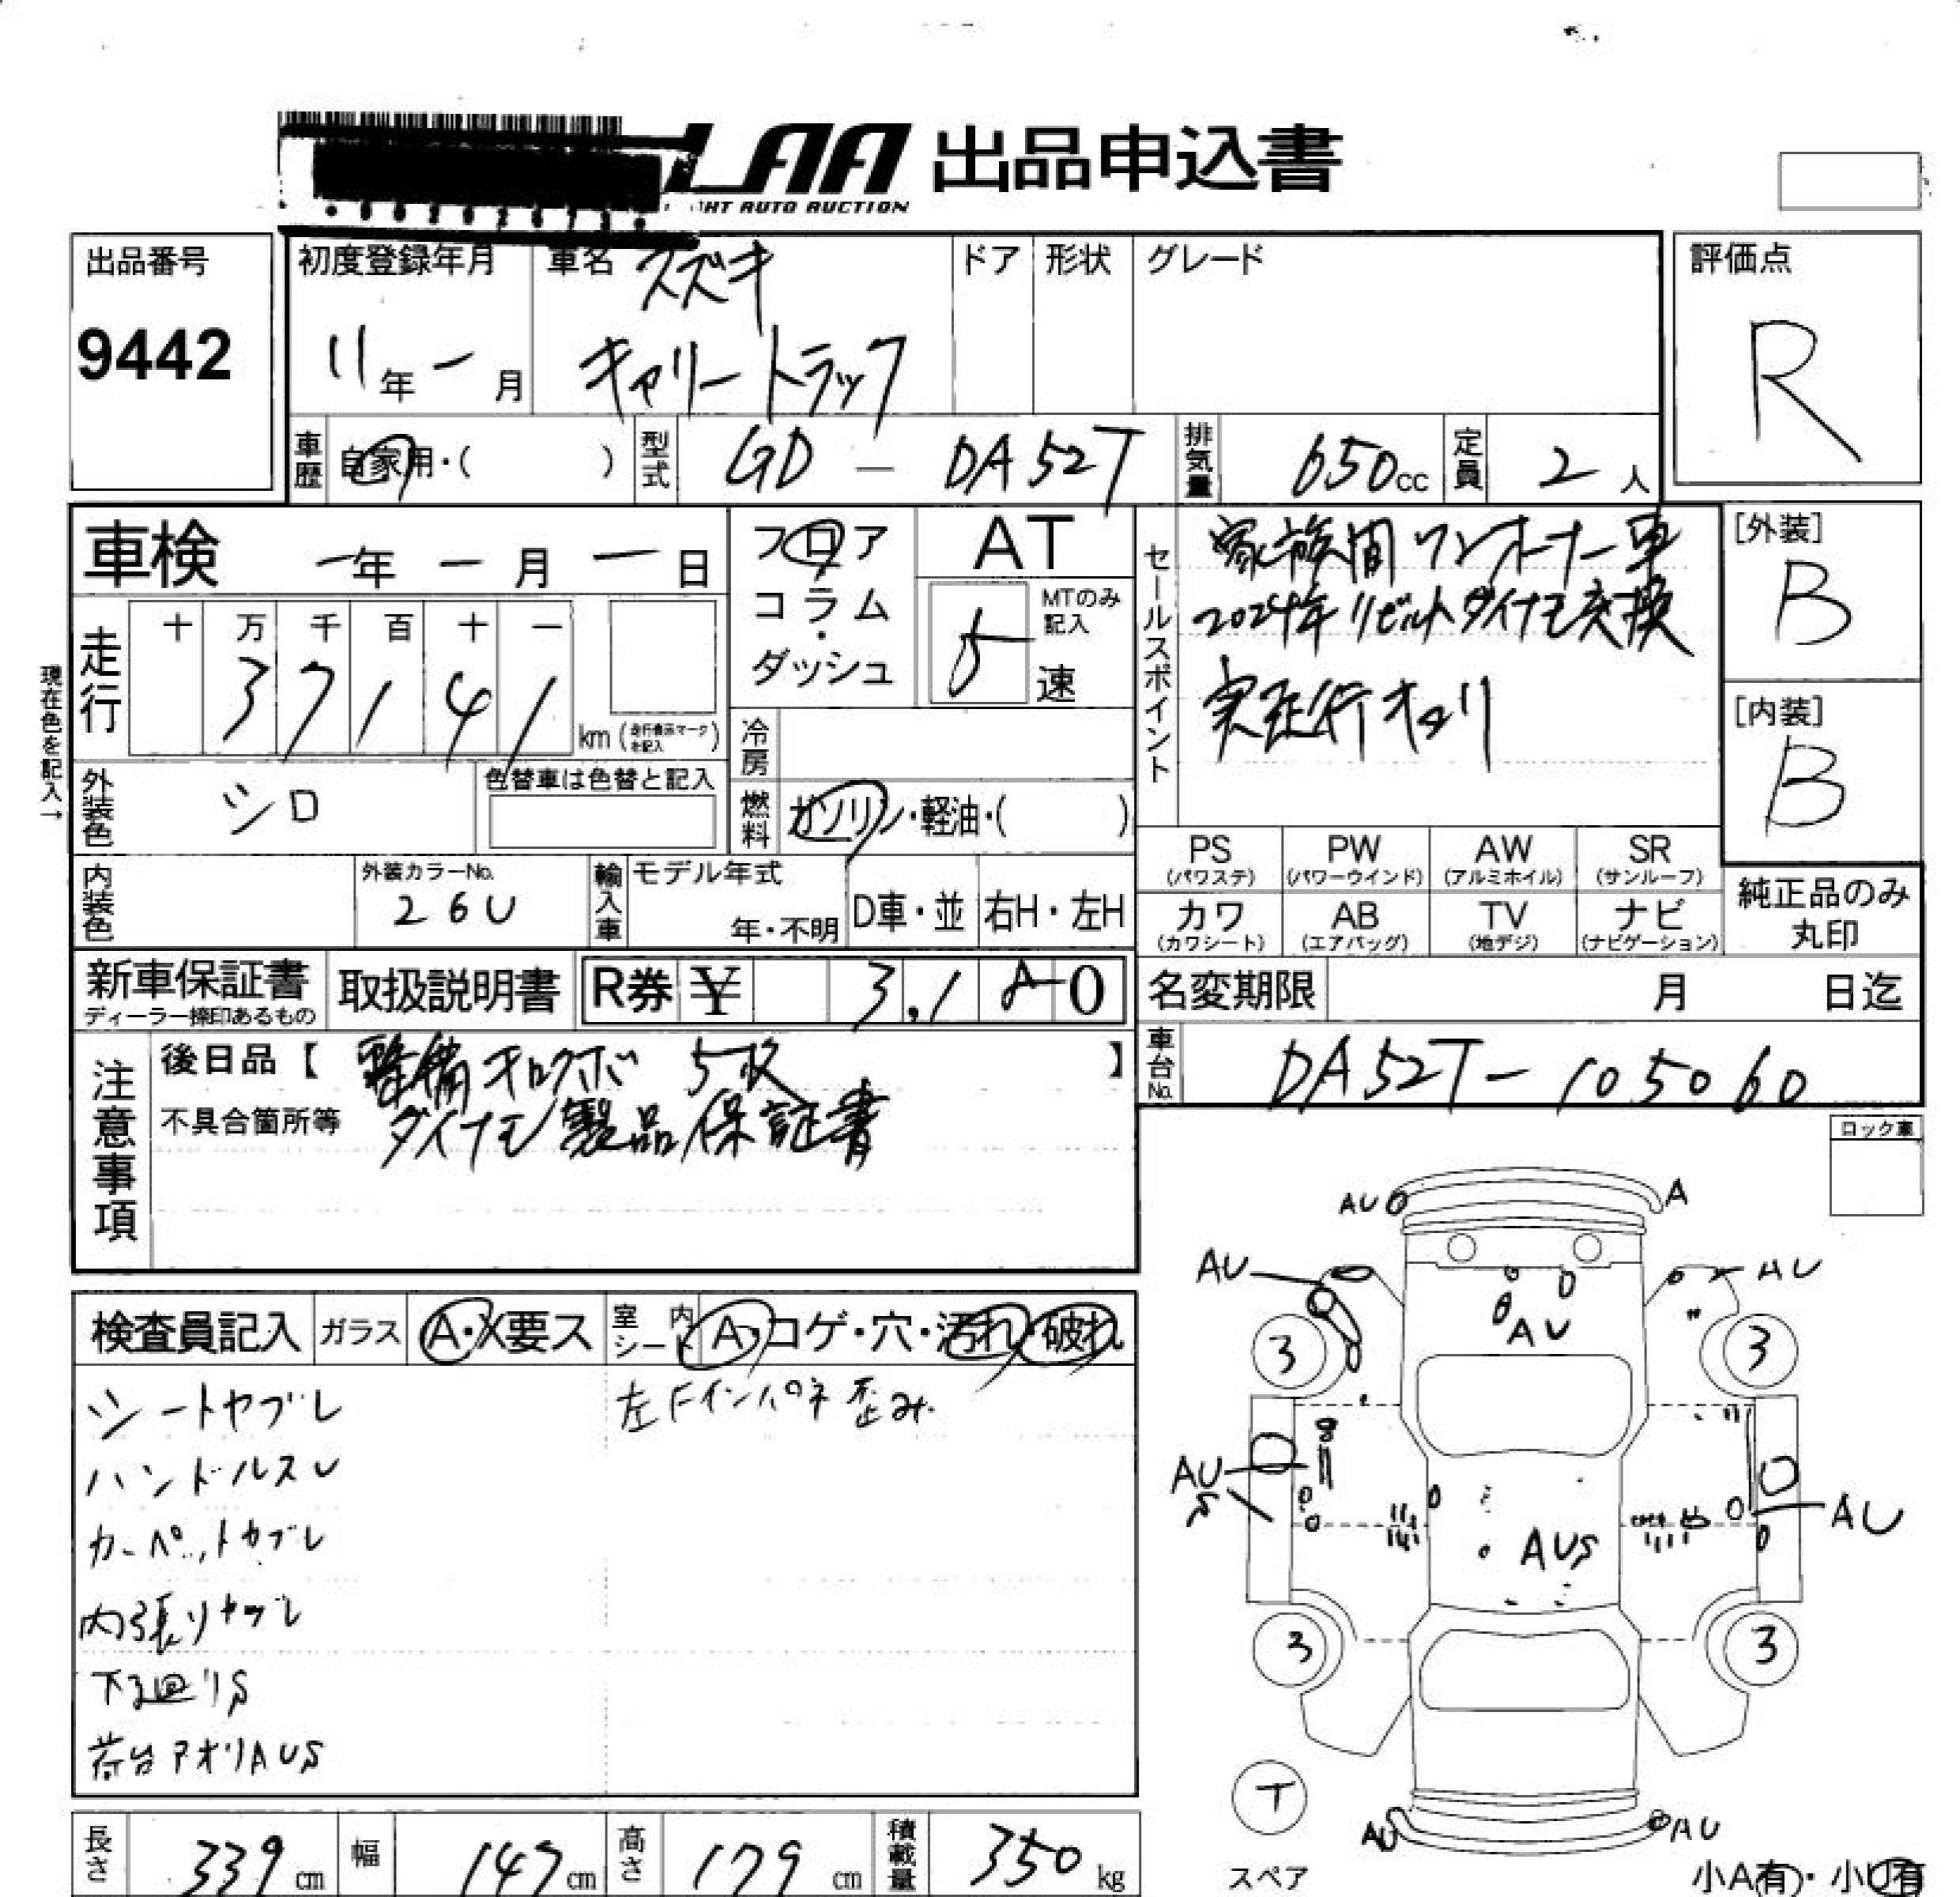 LAA 出品申込書
LIGHT AUTO AUCTION
出品番号
9442
初度登録年月
11年 - 月
車名 スズキ
キャリートラック
ドア
形状
グレード
評価点
R
車歴
自家用・( )
型式
GD - DA52T
排気量
650cc
定員
2人
車検
-年 - 月 - 日
フロア
コラム
・
ダッシュ
AT
MTのみ
記入
5速
セールスポイント
家族間ワンオーナー車
2024年リビルトダイナモ交換
実走行キロリ
[外装]
B
[内装]
B
現在色を記入→
走行
十 万 千 百 十 一
3 7 1 4 1
km (走行表示マークを記入)
冷房
外装色
シロ
色替車は色替と記入
燃料
ガソリン・軽油・( )
PS
(パワステ)
PW
(パワーウインド)
AW
(アルミホイル)
SR
(サンルーフ)
カワ
(カワシート)
AB
(エアバッグ)
TV
(地デジ)
ナビ
(ナビゲーション)
純正品のみ
丸印
内装色
外装カラーNo.
26U
輸入車
モデル年式
年・不明
D車・並
右H・左H
新車保証書
ディーラー捺印あるもの
取扱説明書
R券 ¥ 3,1 0
名変期限
月 日迄
車台No.
DA52T-105060
注意事項
後日品【 整備キロクボ 5枚 】
不具合箇所等
ダイナモ製品保証書
ロック車
検査員記入
ガラス
A・X要ス
室内シート
A・コゲ・穴・汚れ・破れ
シートヤブレ
左Fインパネ歪み.
ハンドルスレ
カーペットヤブレ
内張りヤブレ
下廻りS
荷台アオリAUS
AU
A
AU
AU
AU
3
3
AU
S
AUS
AU
3
3
T
スペア
AU
AU
小A有・小U有
長さ
339cm
幅
147cm
高さ
179cm
積載量
350kg